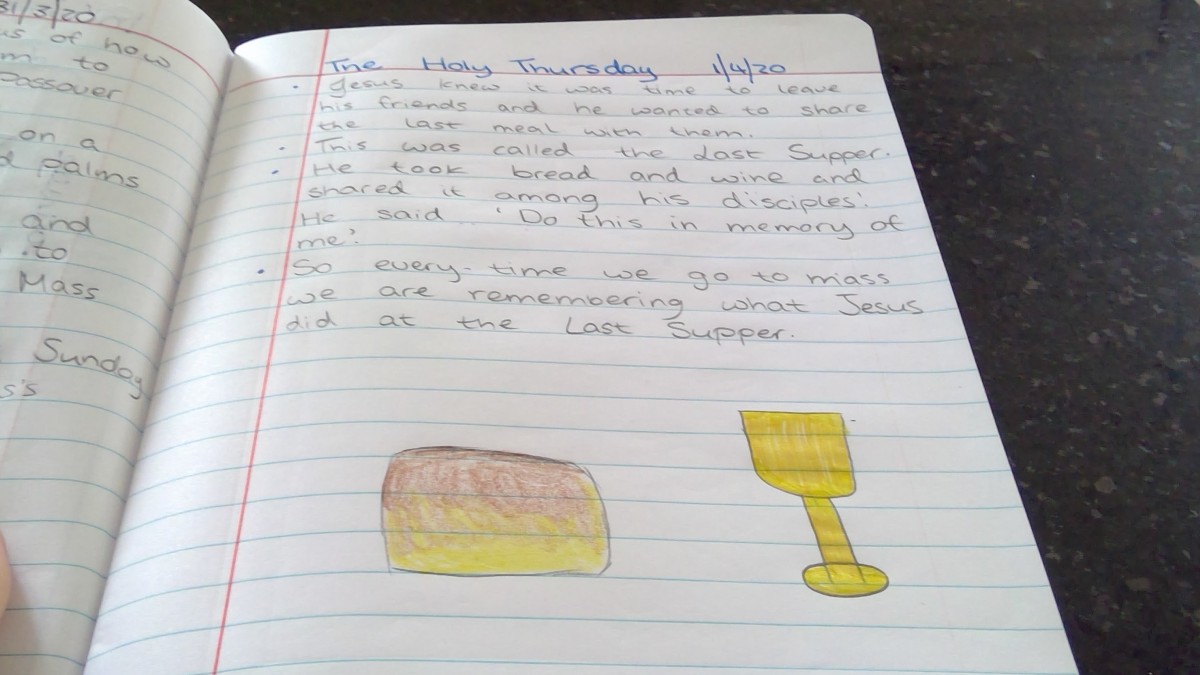 31/3/20
us of how
m to
Passover
on a
d palms
and
to
Mass
Sunday
s's
The Holy Thursday 1/4/20
• Jesus knew it was time to leave
his friends and he wanted to share
the last meal with them.
• This was called the Last Supper.
• He took bread and wine and
shared it among his disciples.
He said 'Do this in memory of
me'.
• So every-time we go to mass
we are remembering what Jesus
did at the Last Supper.